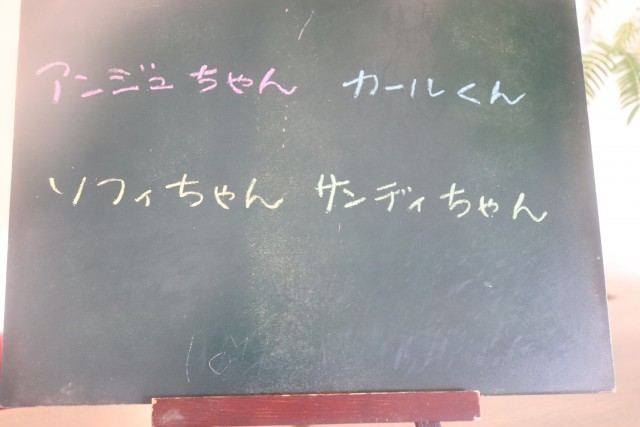 アンジュちゃん カールくん
ソフィちゃん サンディちゃん